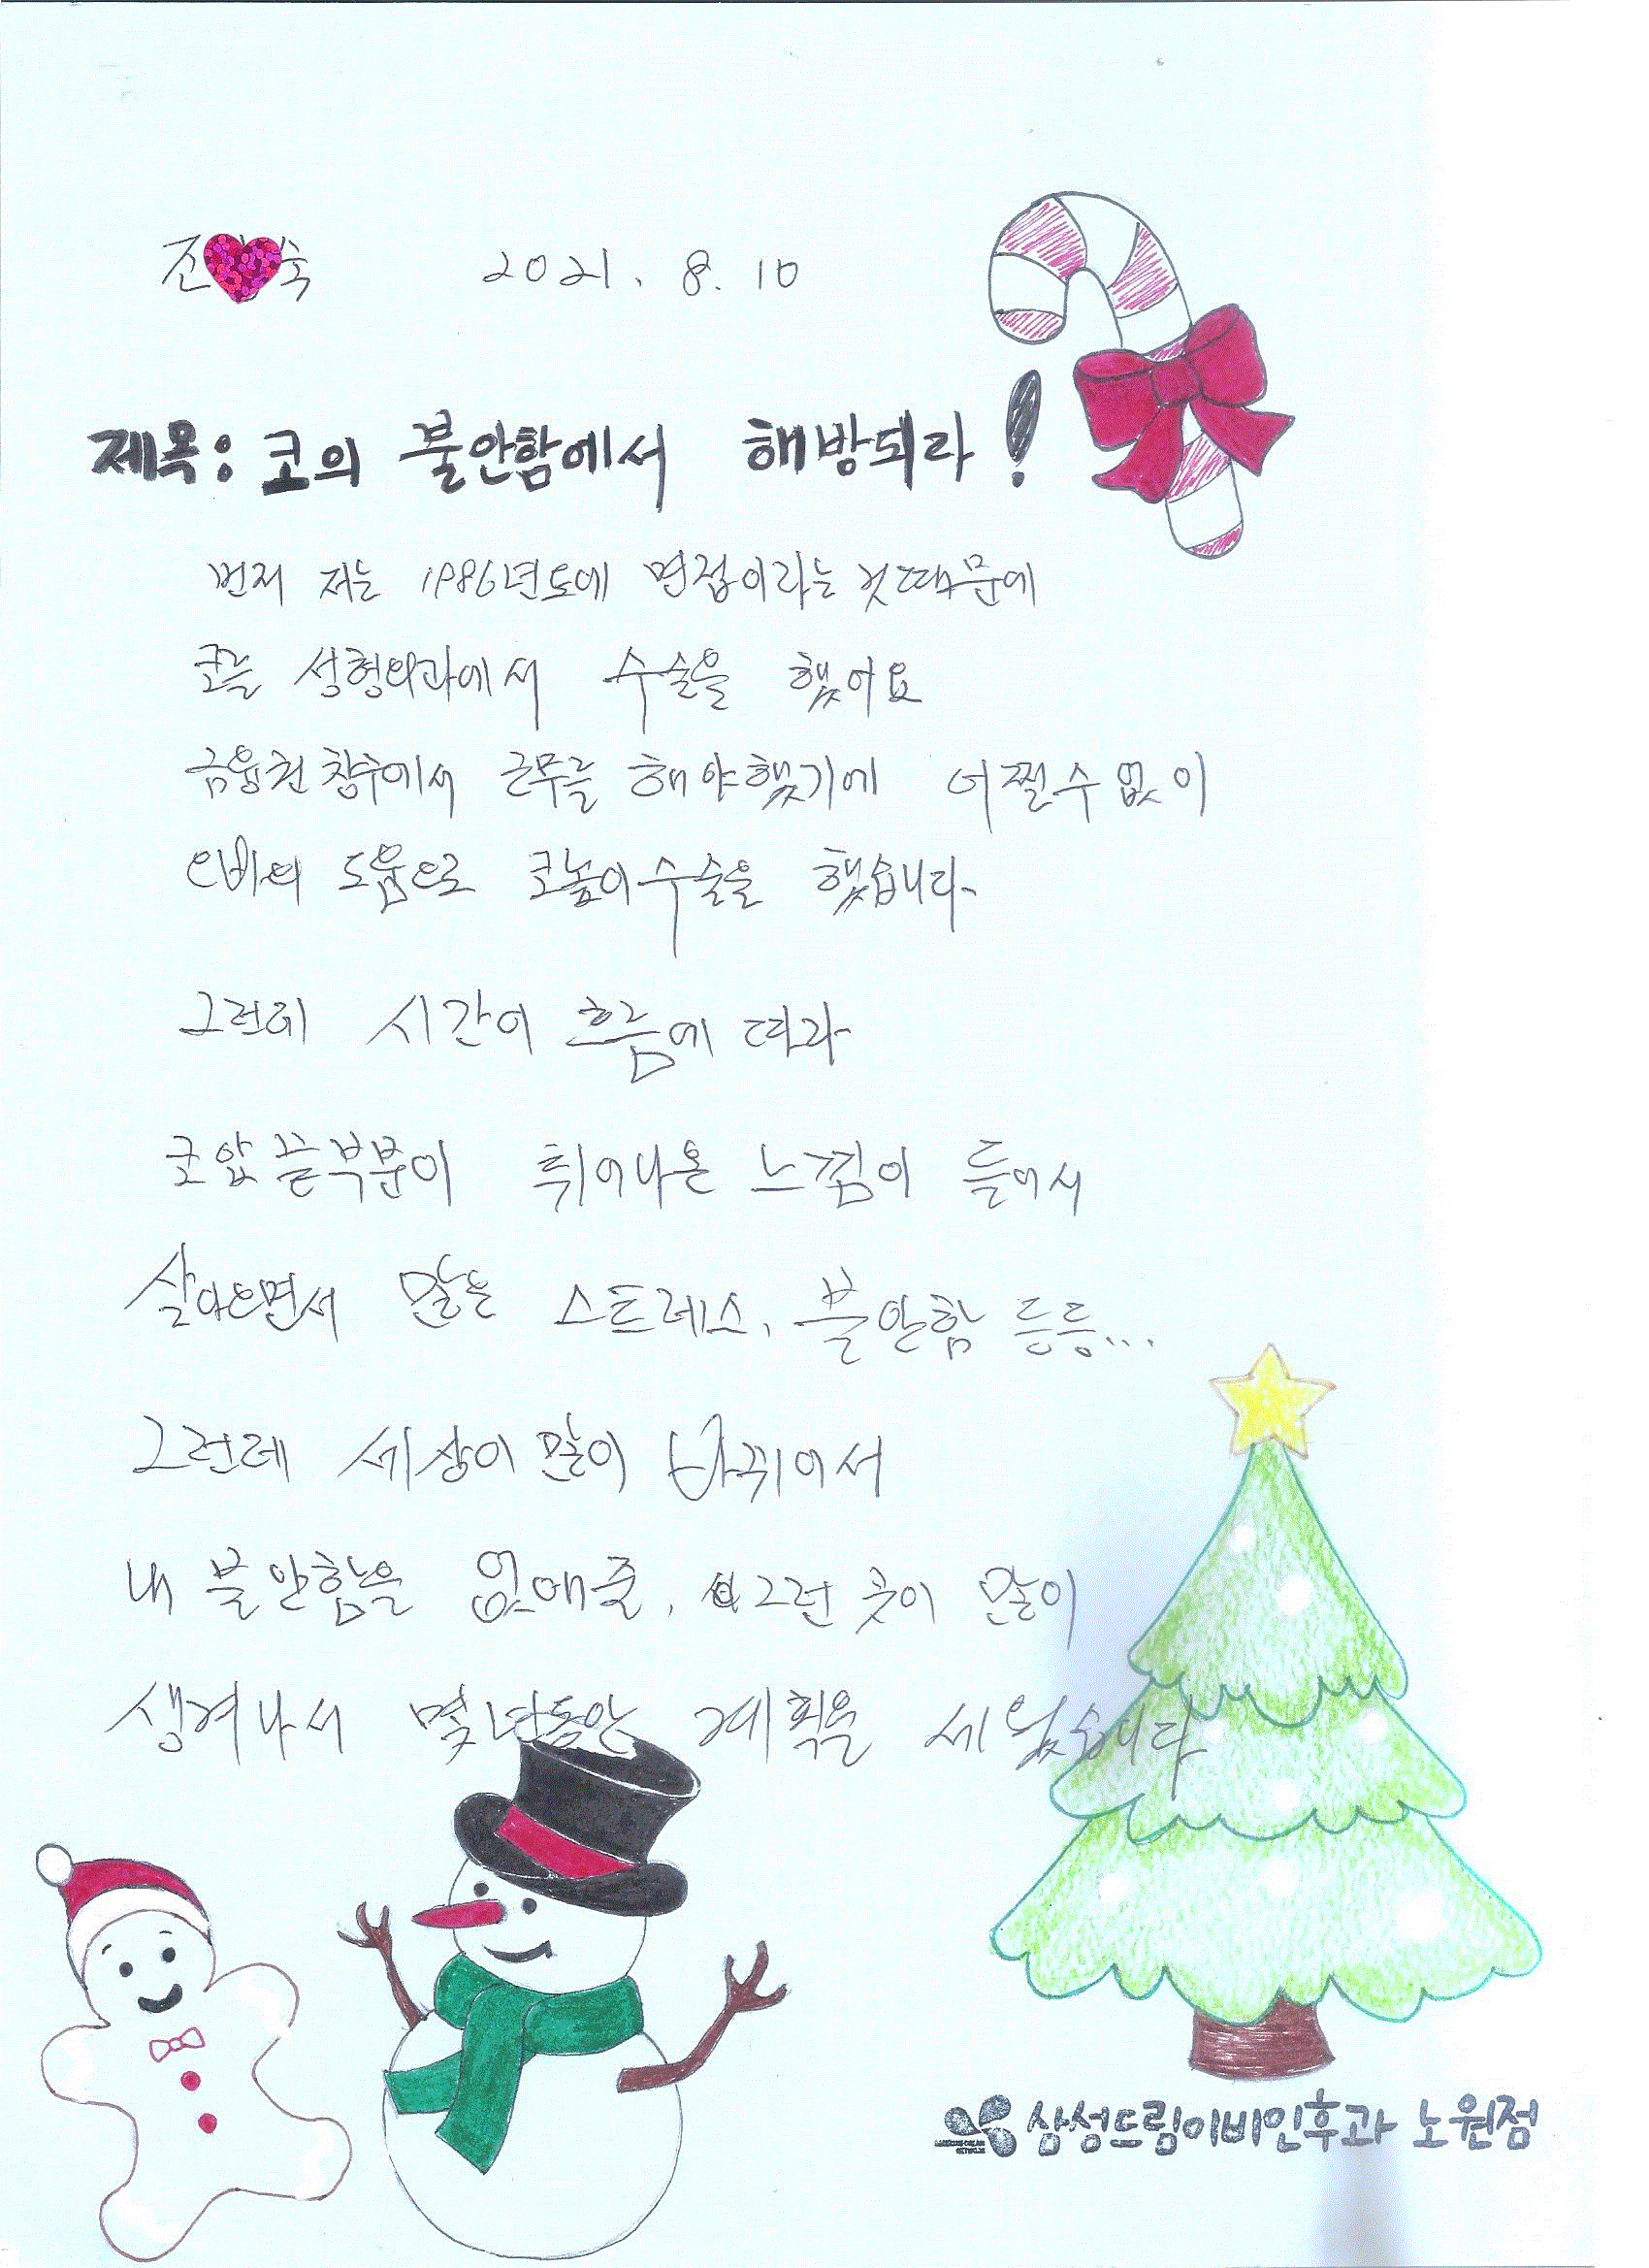 진♥숙 2021. 8. 10
제목: 코의 불안함에서 해방되라!
먼저 저는 1986년도에 면접이라는 것 때문에
코를 성형외과에서 수술을 했어요
금융권 창구에서 근무를 해야했기에 어쩔수없이
의비의 도움으로 코높이수술을 했습니다
그런데 시간이 흐름에 따라
코앞 끝부분이 튀어나온 느낌이 들어서
살아오면서 많은 스트레스, 불안함 등등...
그런데 세상이 많이 바뀌어서
내 불안함을 없애줄, 그런 곳이 많이
생겨나서 몇년동안 계획을 세웠습니다
삼성드림이비인후과 노원점